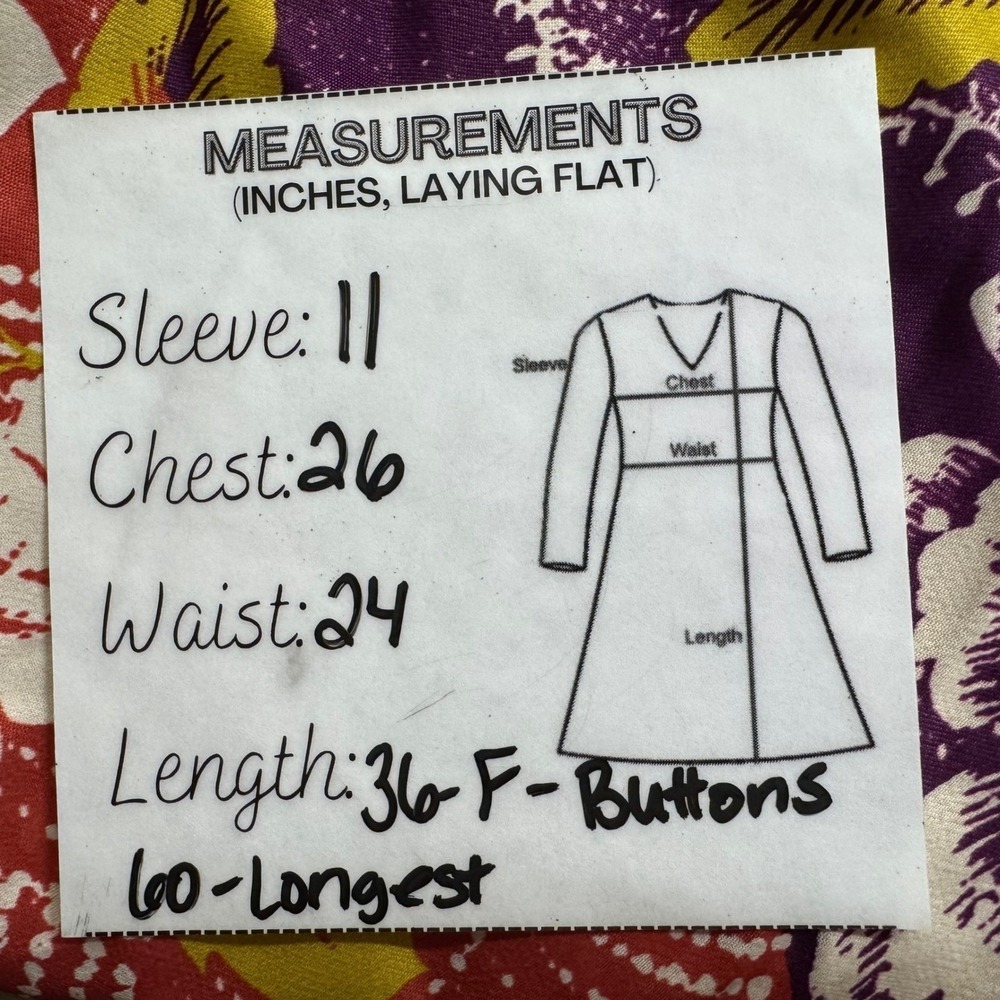 MEASUREMENTS
(INCHES, LAYING FLAT)
Sleeve: 11
Chest: 26
Waist: 24
Length: 36 - F - Buttons
60 - Longest
Sleeve
Chest
Waist
Length